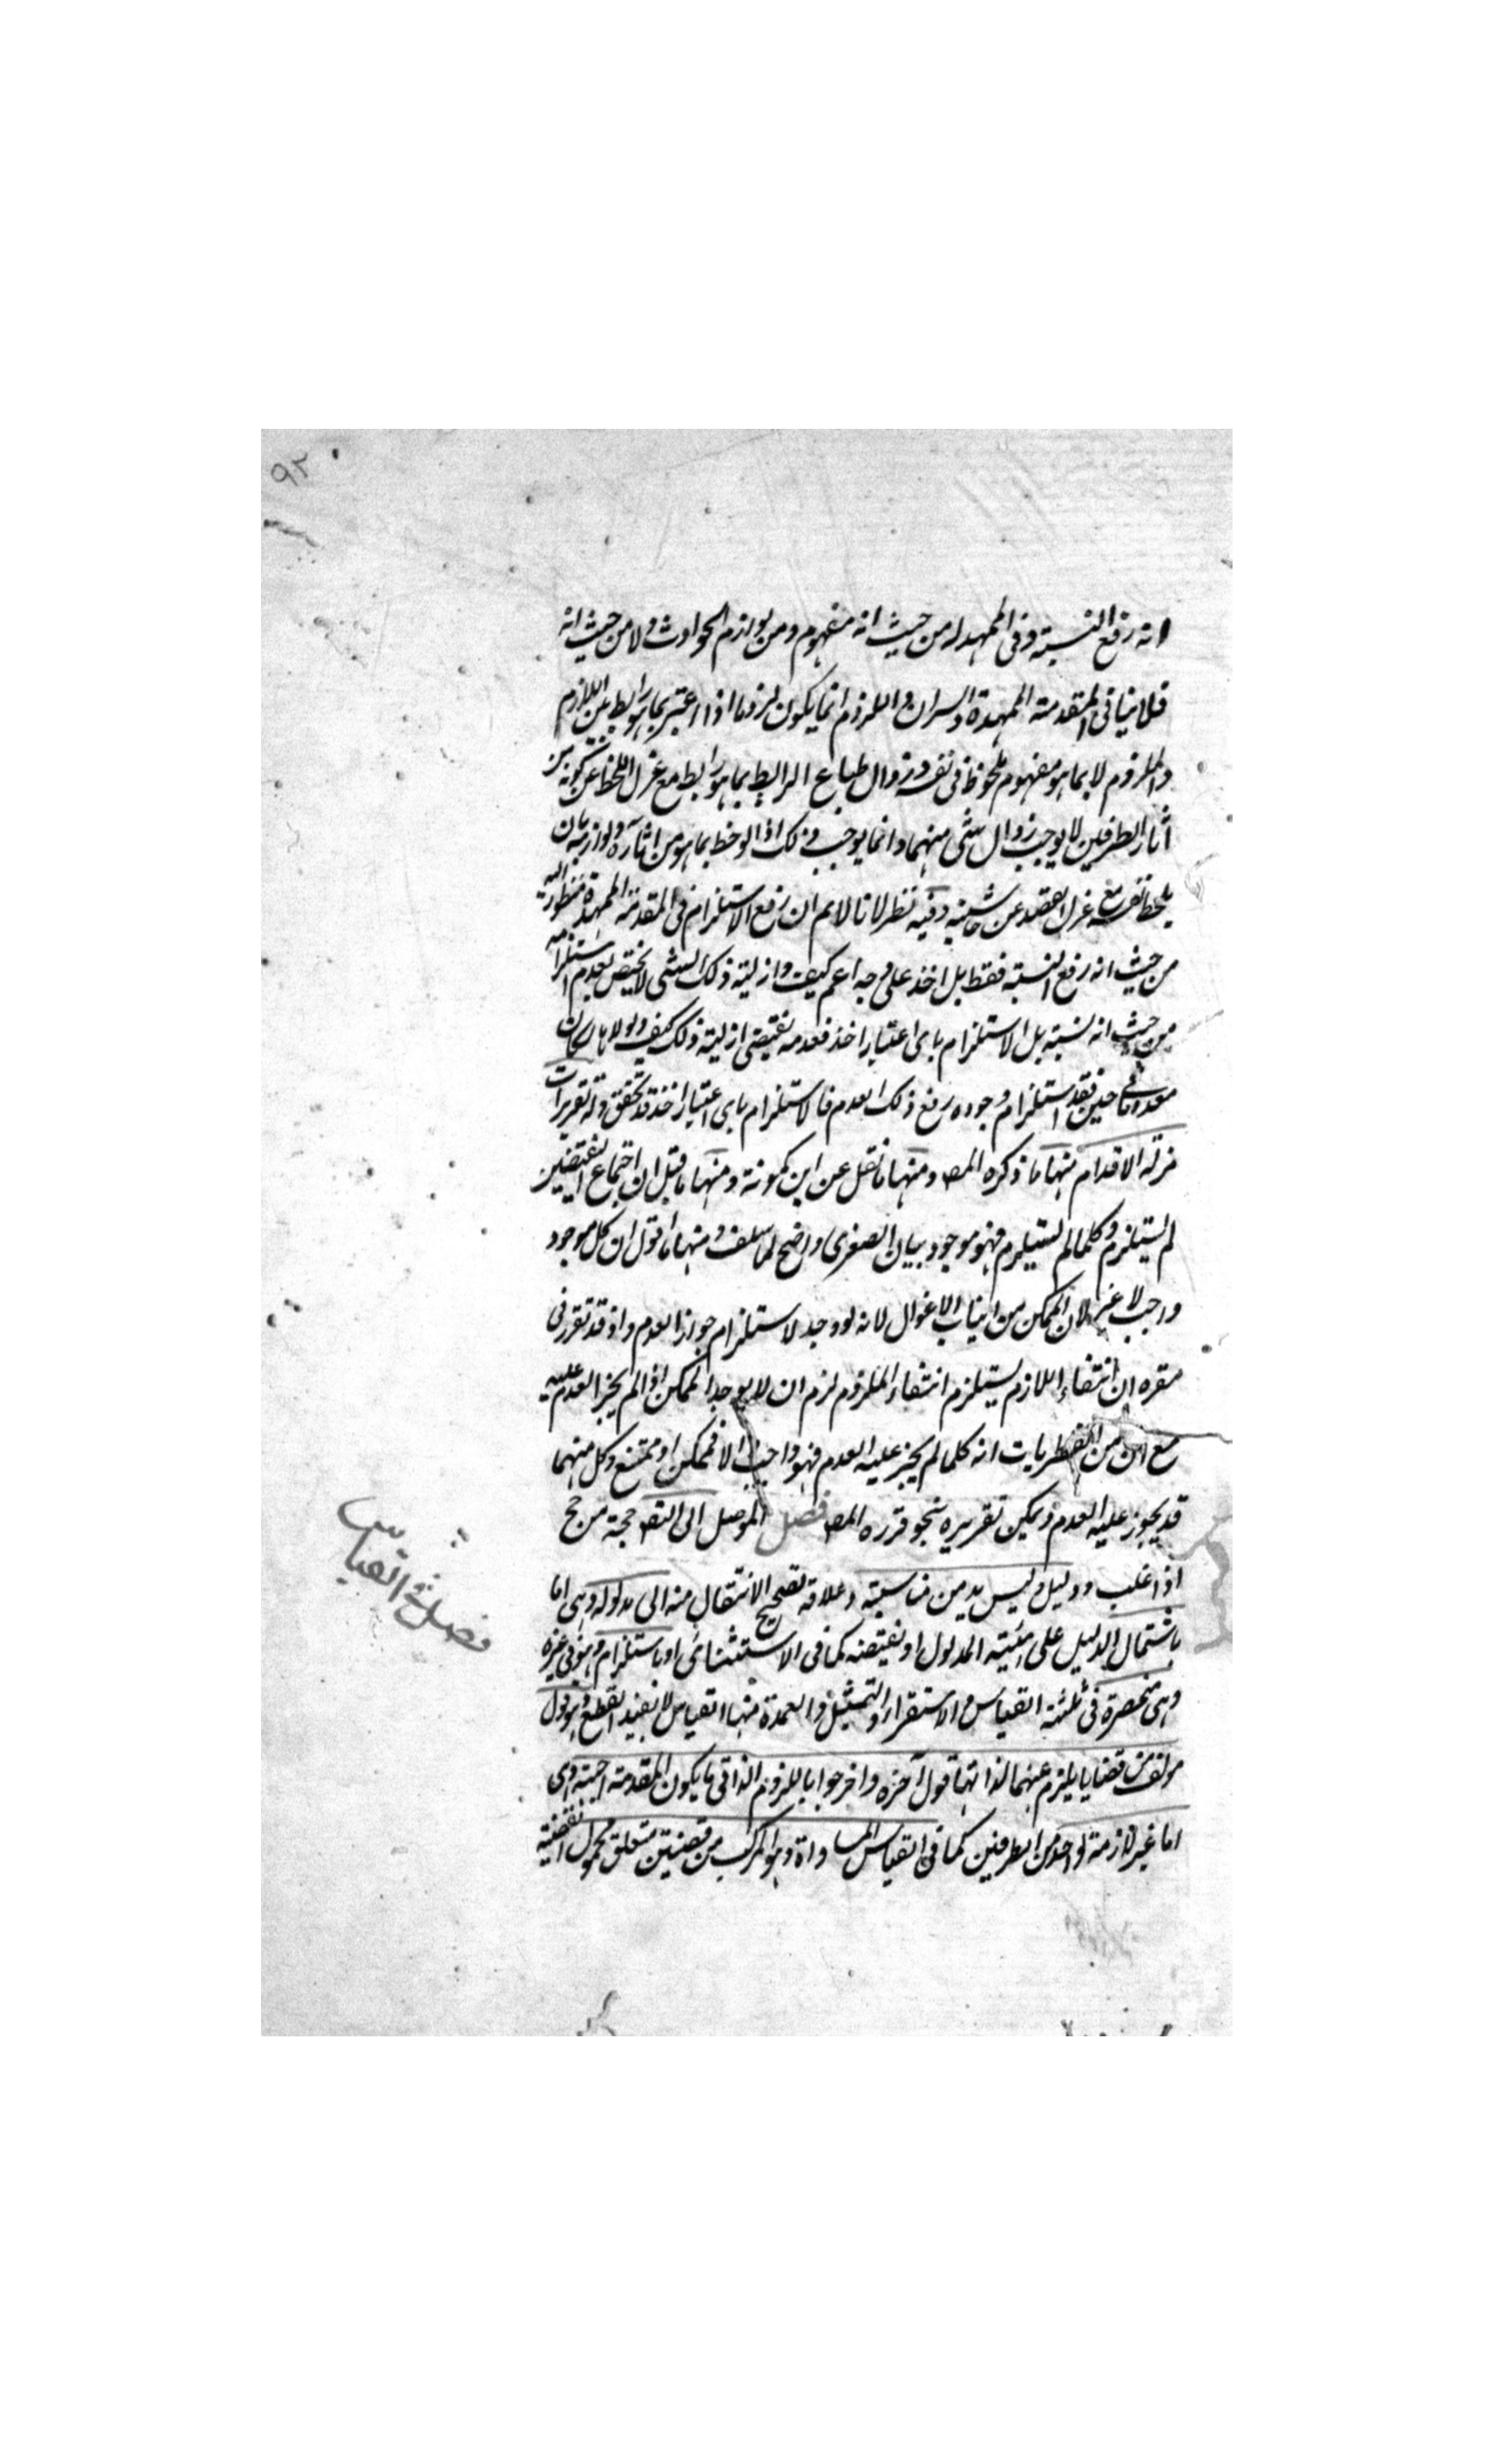 ٩٢
انه رفع النسبة وفى الممهد له من حيث انه مفهوم ومن لوازم الحوادث ولا من حيث انه
فلا ينافى المقدمة الممهدة والسران واللزوم انما يكون لزوما اذا اعتبر بما هو رابط بين اللازم
والملزوم لا بما هو مفهوم ملحوظ فى نفسه وزوال طباع الرابط بما هو رابط مع عزل اللحظ عن كونه من
آثار الطرفين لا يوجب زوال شئ منهما وانما يوجب ذلك اذا لوحظ بما هو من آثاره ولوازمه بان
يلحظ نفسه مع عزل العقد عن حاشيته وفيه نظر لانا لا نم ان رفع الاستلزام فى المقدمة الممهدة منظور اليه
من حيث انه رفع النسبة فقط بل اخذ على وجه اعم كيف وازلية ذلك الشئ لا يختص بعدم استلزامه
من حيث انه نسبة بل الاستلزام باى اعتبار اخذ فعدمه يقتضى ازلية ذلك كيف ولولاها لكان
معدوما فى حين فقد استلزام وجوده رفع ذلك العدم فالاستلزام باى اعتبار اخذ قد تحقق وله تقريرات
مزلة الاقدام منها ما ذكره المص ومنها ما نقل عن ابن كمونة ومنها ما قيل ان اجتماع النقيضين
لم يستلزم وكلما لم يستلزم فهو موجود بيان الصغرى واضح لما سلف ومنها ما اقول ان كل موجود
واجب لا غير لان الممكن من انياب الاغوال لانه لو وجد لاستلزام جواز العدم واذ قد تقرر فى
مقره ان انتفاء اللازم يستلزم انتفاء الملزوم لزم ان لا يوجد الممكن اذا لم يجز العدم عليه
مع ان من الفطريات انه كلما لم يجز عليه العدم فهو واجب والا فممكن او ممتنع وكل منهما
قد يجوز عليه العدم ويمكن تقريره بنحو قرره المص فصل الموصل الى التص حجة من حج
اذا غلب ودليل وليس بد من مناسبة وعلاقة تصحيح الانتقال منه الى مدلوله وهى اما
باشتمال الدليل على هيئة المدلول او نقيضه كما فى الاستثنائى او باستلزام وهو فى غيره
وهى منحصرة فى ثلثة القياس والاستقراء والتمثيل والعمدة منها القياس لا يفيد القطع وهو قول
مولف من قضايا يلزم عنها لذاتها قول آخره واخرجوا باللزوم الذاتى ما يكون المقدمة اجنبية وهى
اما غير لازمة لواحد من الطرفين كما فى القياس المساواة وهو المركب من قضيتين متعلق محمول القضية
فصل فى القياس